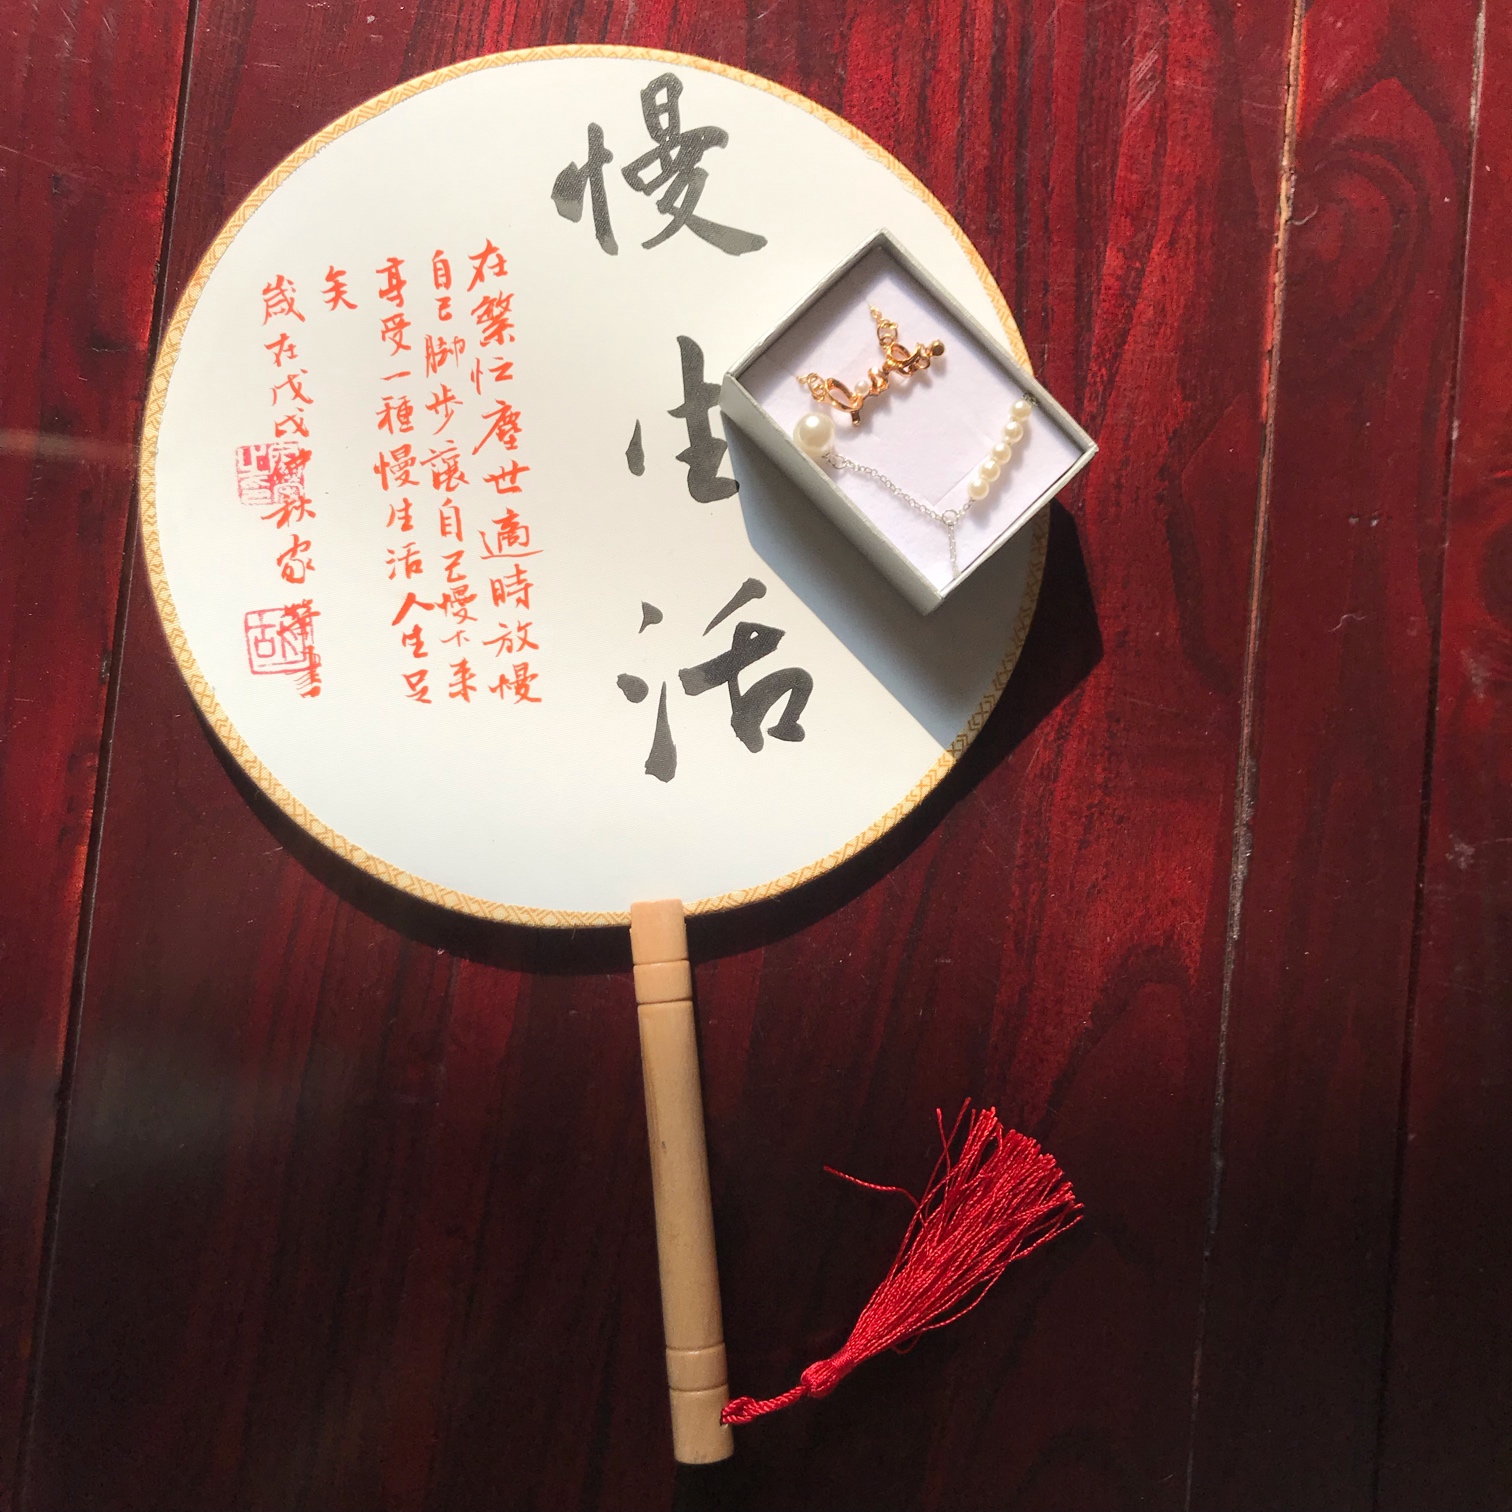 慢生活
在繁忙塵世適時放慢
自己脚步讓自己慢下来
享受一種慢生活人生足
矣
歳在戊戌中秋家華書